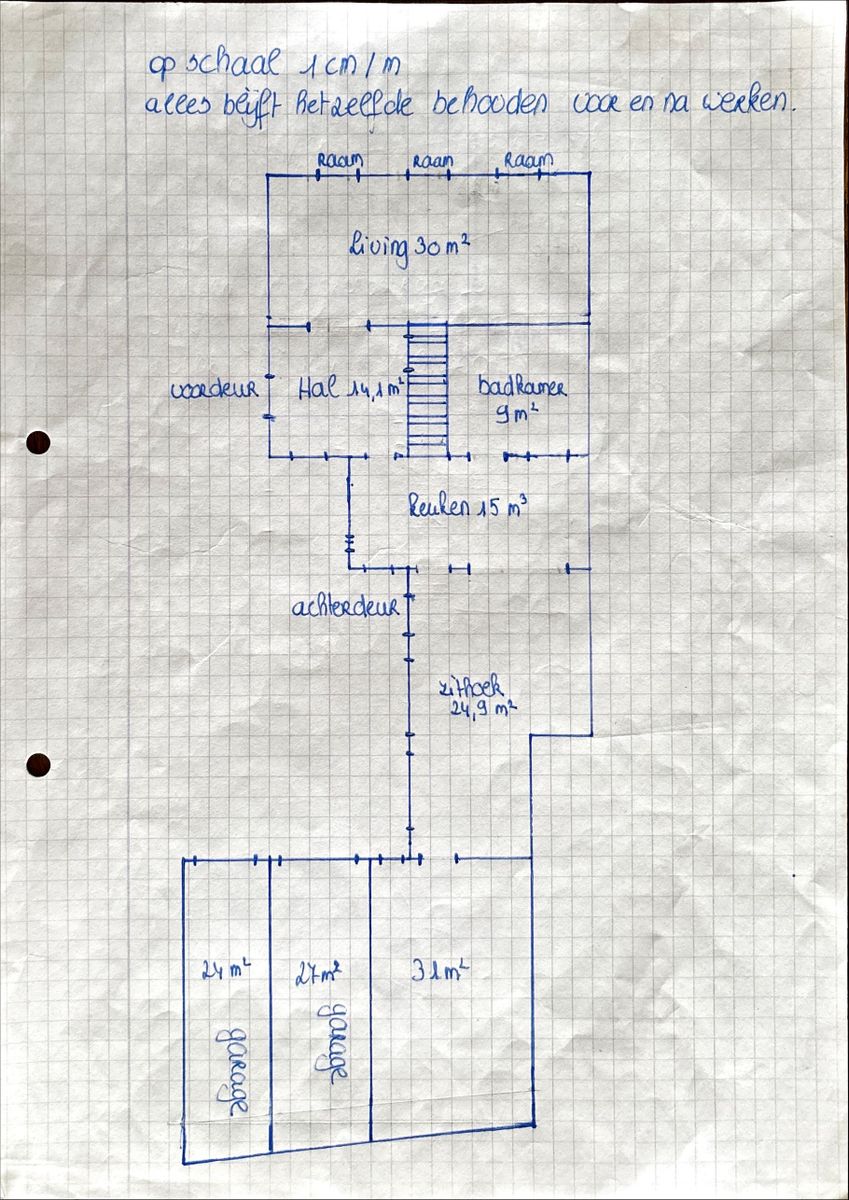 op schaal 1 cm/m
alles blijft hetzelfde behouden voor en na werken.
Raam Raam Raam
living 30 m²
voordeur Hal 14,1 m² badkamer
9 m²
keuken 15 m³
achterdeur
zithoek
24,9 m²
24 m² 27 m² 31 m²
garage garage